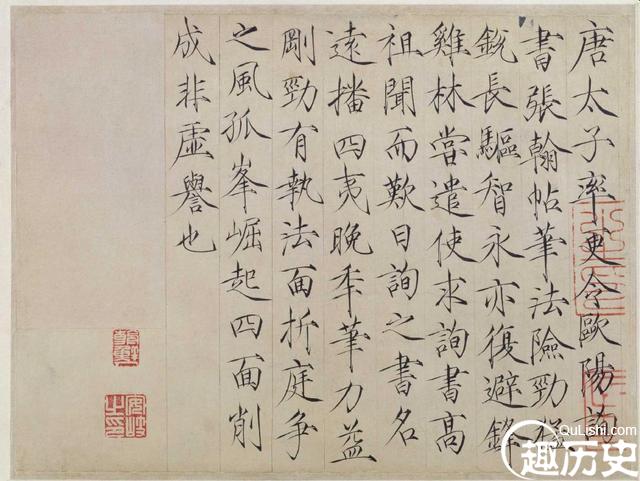 唐太子率更令歐陽詢
書張翰帖筆法險勁猛
銳長驅智永亦復避鋒
雞林嘗遣使求詢書高
祖聞而歎曰詢之書名
遠播四夷晚年筆力益
剛勁有執法面折庭爭
之風孤峯崛起四面削
成非虛譽也
QuLishi.com
趣历史